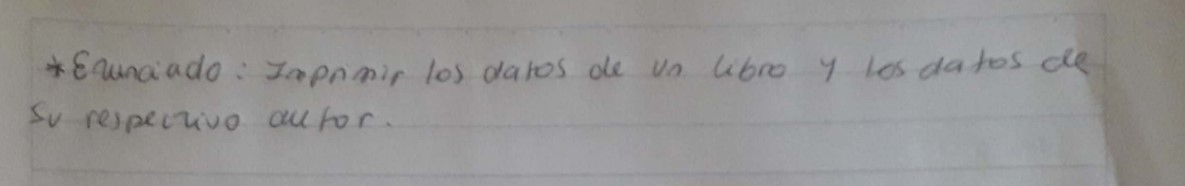 *Enunciado: Imprimir los datos de un libro y los datos de
su respectivo autor.